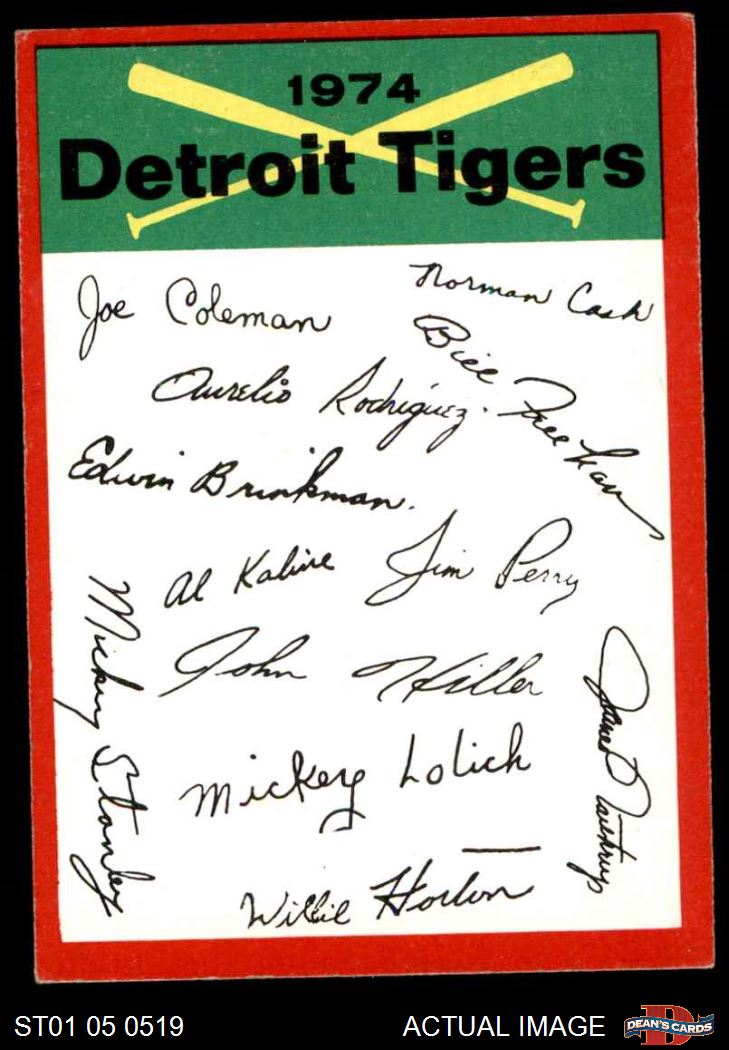 1974
Detroit Tigers
Joe Coleman
Norman Cash
Bill Freehan
Aurelio Rodriguez.
Edwin Brinkman.
Al Kaline
Jim Perry
John Hiller
Mickey Stanley
Mickey Lolich
James Northrup
Willie Horton
ST01 05 0519
ACTUAL IMAGE
D
DEAN'S CARDS